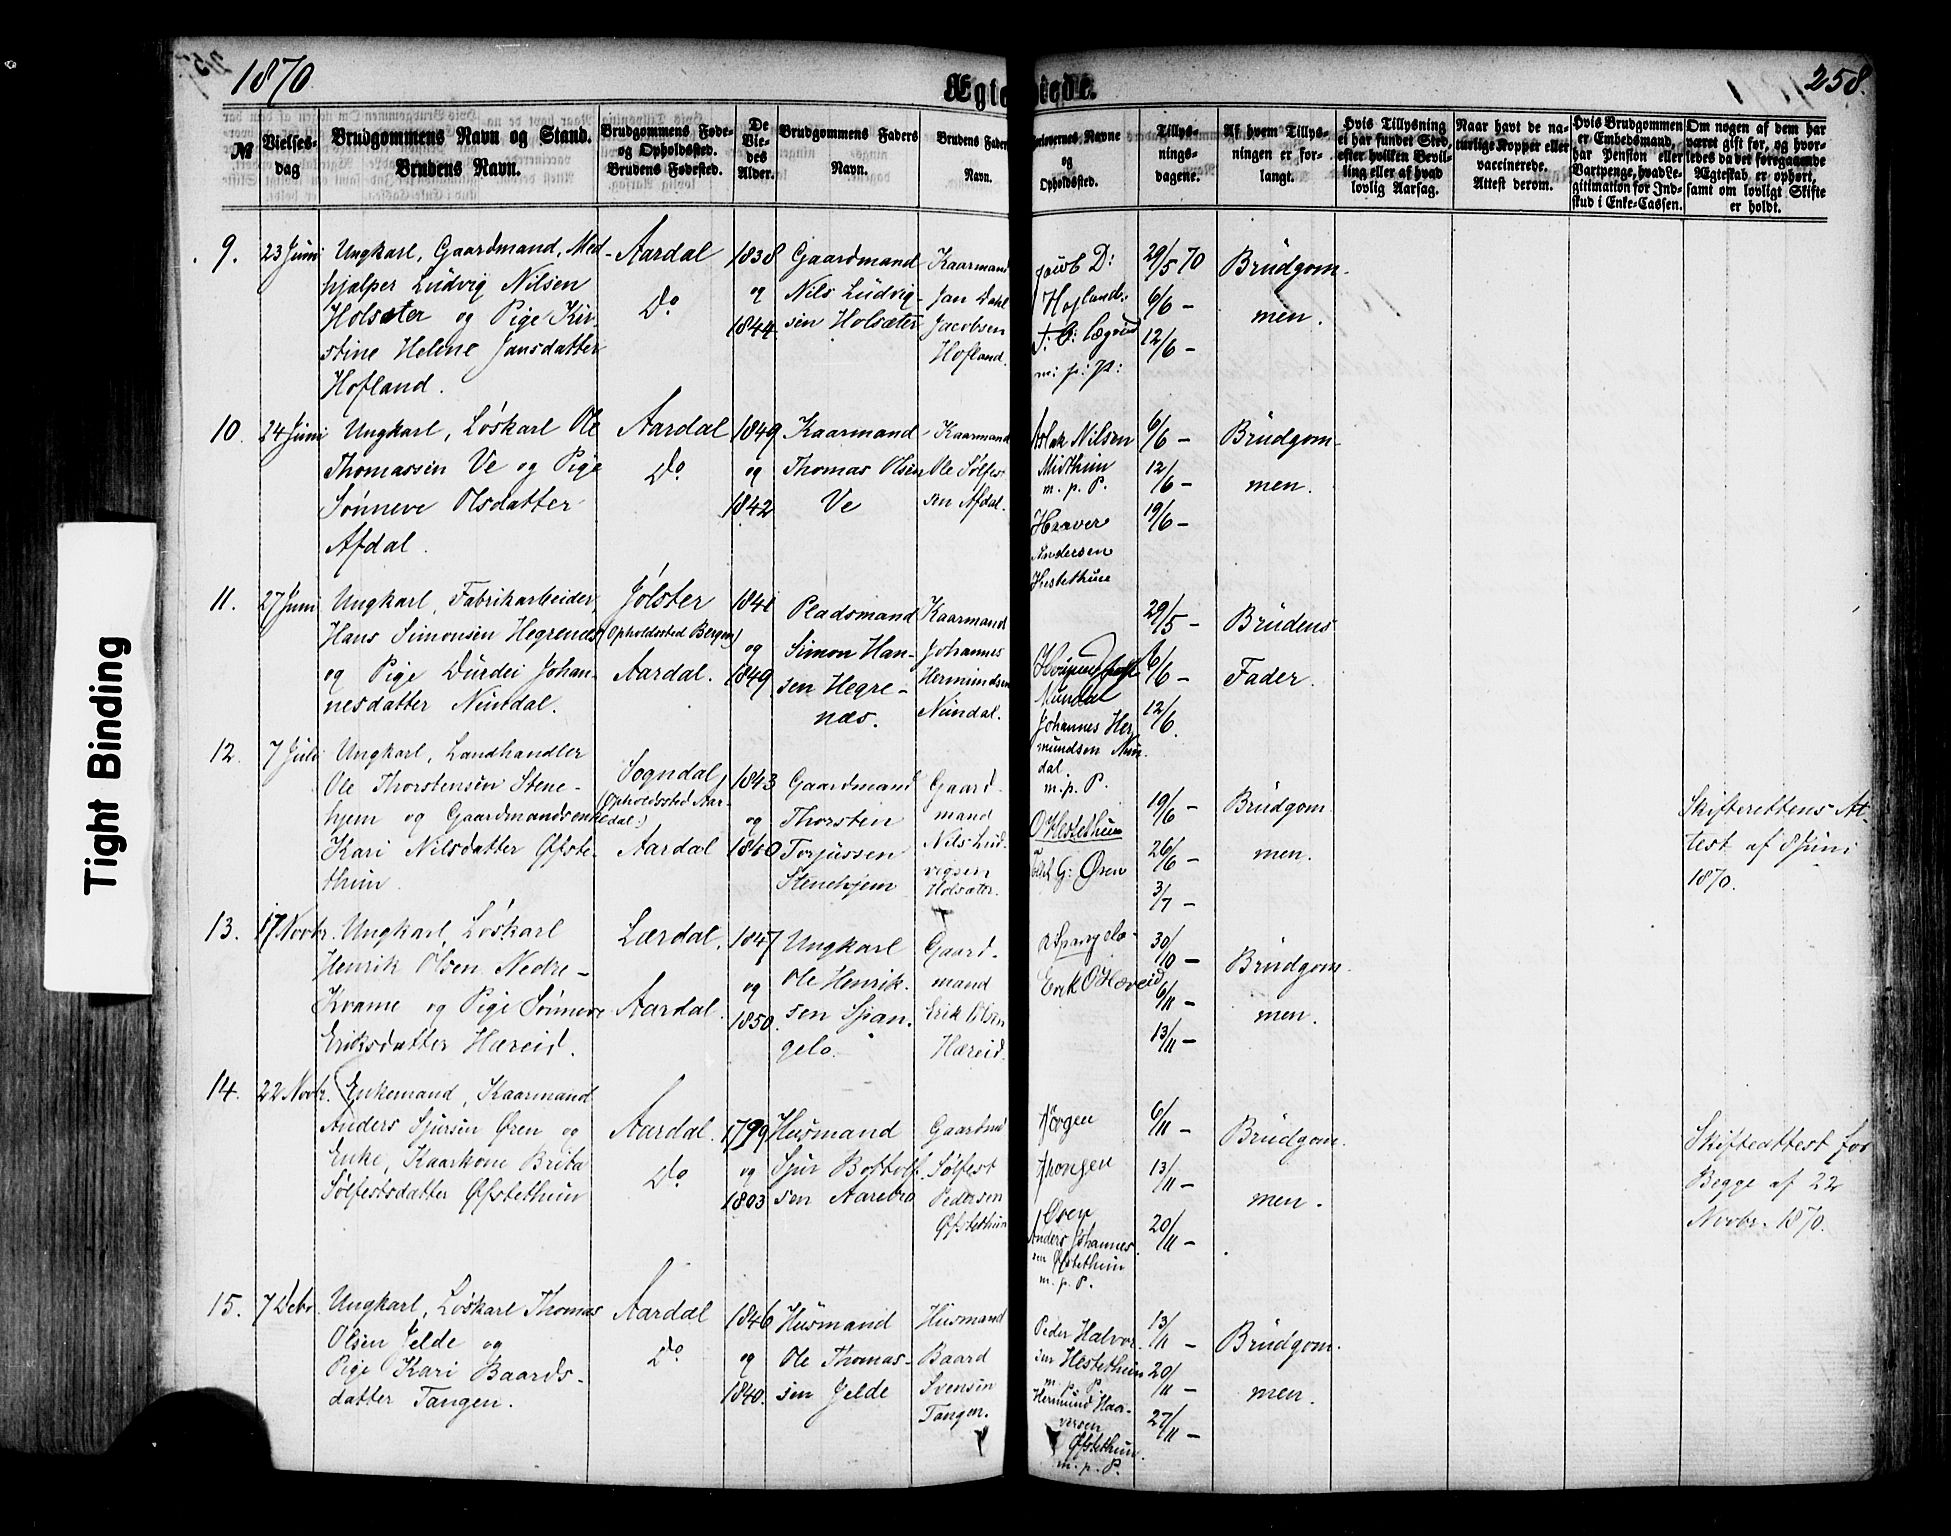 1870
Ægte viede.
258.
№
Vielses-
dag
Brudgommens Navn og Stand.
Brudens Navn.
Brudgommens Føde-
og Opholdssted.
Brudens Fødested.
De
Vie-
des
Alder.
Brudgommens Faders
Navn.
Brudens Faders
Navn.
Forlovernes Navne
og
Opholdssted.
Tillys-
nings-
dagene.
Af hvem Tillys-
ningen er for-
langt.
Hvis Tillysning
ei har fundet Sted,
efter hvilken Bevil-
ling eller af hvad
lovlig Aarsag.
Naar havt de na-
turlige Kopper eller
vaccinerede.
Attest derom.
Hvis Brudgommen
er Embedsmand,
har Pension eller
Vartpenge, hvad Le-
gitimation for Ind-
skud i Enke-Cassen.
Om nogen af dem har
været gift før, og hvor-
ledes da det foregaaende
Ægteskab er ophørt,
samt om lovligt Skifte
er holdt.
9.
23 Juni
Ungkarl, Gaardmand, Med-
hjælper Ludvig Nilsen
Holsæter og Pige Kir-
stine Helene Jansdatter
Hofland.
Aardal
Do
1838
og
1844.
Gaardmand
Nils Ludvig-
sen Holsæter
Kaarmand
Jan Dahl
Jacobsen
Hofland.
Jacob D:
Hofland:
m: p: P:
29/5 70
6/6 –
12/6 –
Brudgom-
men.
10.
24 Juni
Ungkarl, Løskarl Ole
Thomassen Ve og Pige
Sønneve Olsdatter
Afdal.
Aardal
Do
1849
og
1842
Kaarmand
Thomas Olsen
Ve
Kaarmand
Ole Sølfes-
sen Afdal.
Aslak Nilsen
Midthun
m. p. P.
Haaver
Andersen
Hestethun
6/6 –
12/6 –
19/6 –
Brudgom-
men.
11.
27 Juni
Ungkarl, Fabrikarbeider,
Hans Simonsen Hegrenæs
og Pige Durdei Johan-
nesdatter Nundal.
Jølster
(Opholdssted Bergen)
Aardal.
1841
og
1849.
Pladsmand
Simon Han-
sen Hegre-
næs.
Kaarmand
Johannes
Hermundsen
Nundal.
Nundal
Johannes Her
mundsen Nun-
dal.
m. p. P.
29/5 –
6/6 –
12/6.
Brudens
Fader.
12.
7 Juli
Ungkarl, Landhandler
Ole Thorstensen Stene-
hjem og Gaardmandsenke
Kari Nilsdatter Øfste-
thun.
Sogndal,
(Opholdssted Aar-
dal.)
Aardal
1843
og
1840
Gaardmand
Thorsten
Torjussen
Stenehjem
Gaard-
mand
Nils Lud-
vigsen
Holsæter.
O Hestethun
G: Øren
19/6 –
26/6 –
3/7 –
Brudgom-
men.
Skifterettens At-
test af 8 Juni
1870.
13.
17 Novbr.
Ungkarl, Løskarl
Henrik Olsen Nedre-
Kvame og Pige Sønneve
Eriksdatter Hæreid.
Lærdal.
Aardal.
1847
og
1850.
Ungkarl
Ole Henrik-
sen Span-
gelo.
Gaard-
mand
Erik Olsen
Hæreid.
O Spangelo-
Erik O Hæreid
30/10 –
6/11 –
13/11 –
Brudgom-
men.
14.
22 Novbr.
Enkemand, Kaarmand
Anders Sjursen Øren og
Enke, Kaarkone Brita
Sølfestsdatter Øfstethun
Aardal.
Do
1799
og
1803
Husmand
Sjur Bottolf-
sen Aarebro
Gaardmd
Sølfest
Pedersen
Øfstethun
Jørgen
Øren
Anders Johannes-
sen Øfstethun
m. p. P.
6/11 –
13/11 –
20/11 –
Brudgom-
men.
Skifteattest for
Begge af 22
Novbr. 1870.
15.
7 Debr.
Ungkarl, Løskarl Thomas
Olsen Jelde og
Pige Kari Baards-
datter Tangen.
Aardal
Do
1846
og
1840.
Husmand
Ole Thomas-
sen Jelde
Husmand
Baard
Svensen
Tangen.
Peder Halvor-
sen Hestethun
m. p. P.
Hermund Haa-
versen
Øfstethun.
m. p. P.
13/11 –
20/11 –
27/11 –
Brudgom-
men.
Tight Binding